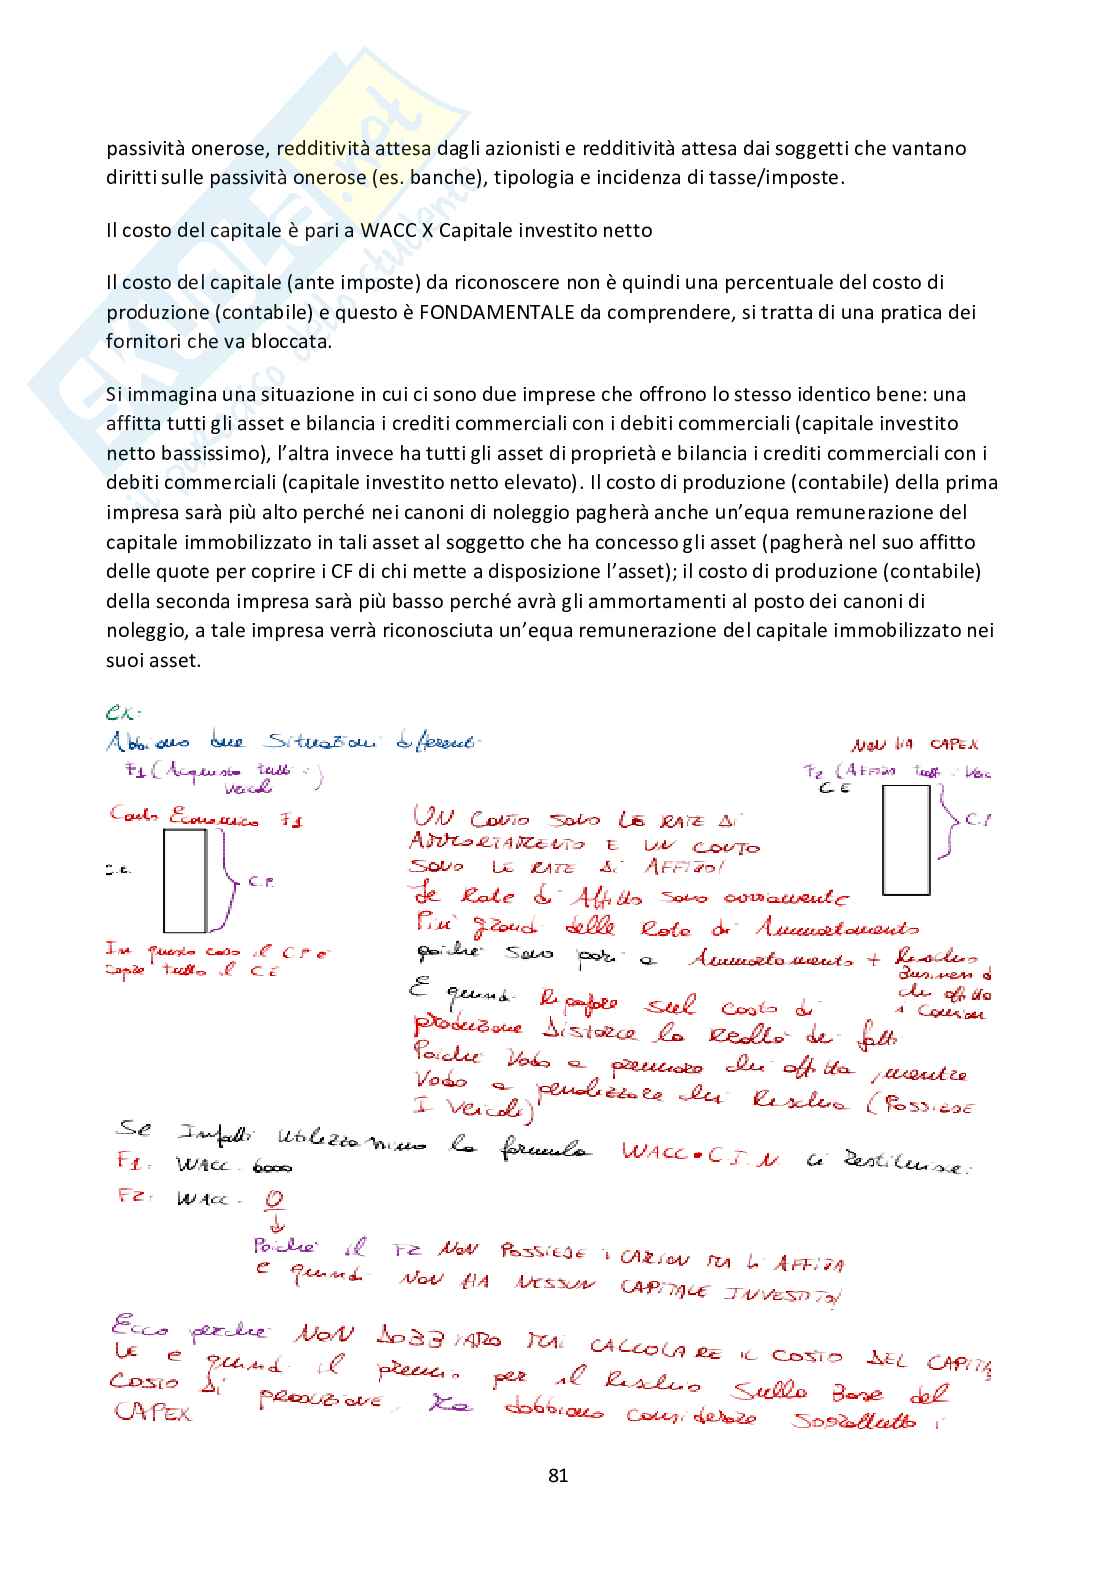 passività onerose, redditività attesa dagli azionisti e redditività attesa dai soggetti che vantano
diritti sulle passività onerose (es. banche), tipologia e incidenza di tasse/imposte.
Il costo del capitale è pari a WACC X Capitale investito netto
Il costo del capitale (ante imposte) da riconoscere non è quindi una percentuale del costo di
produzione (contabile) e questo è FONDAMENTALE da comprendere, si tratta di una pratica dei
fornitori che va bloccata.
Si immagina una situazione in cui ci sono due imprese che offrono lo stesso identico bene: una
affitta tutti gli asset e bilancia i crediti commerciali con i debiti commerciali (capitale investito
netto bassissimo), l’altra invece ha tutti gli asset di proprietà e bilancia i crediti commerciali con i
debiti commerciali (capitale investito netto elevato). Il costo di produzione (contabile) della prima
impresa sarà più alto perché nei canoni di noleggio pagherà anche un’equa remunerazione del
capitale immobilizzato in tali asset al soggetto che ha concesso gli asset (pagherà nel suo affitto
delle quote per coprire i CF di chi mette a disposizione l’asset); il costo di produzione (contabile)
della seconda impresa sarà più basso perché avrà gli ammortamenti al posto dei canoni di
noleggio, a tale impresa verrà riconosciuta un’equa remunerazione del capitale immobilizzato nei
suoi asset.
ex.
Abbiamo due situazioni differenti
NON HA CAPEX
F1 (Acquisto tutti i
veicoli)
F2 (Affitto tutti i Veic
C E
Conto Economico F1
C.E.
C.P.
In questo caso il C P è
tutto il C E
UN CONTO SONO LE RATE DI
AMMORTAMENTO E UN CONTO
SONO LE RATE DI AFFITTO!
Le Rate di Affitto sono ovviamente
Più grandi delle Rate di Ammortamento
poiché sono pari a Ammortamento + Rischio
Business di
chi affitta
i camion
E quindi sul costo di
produzione Distorce la realtà dei fatti
Poiché Vado a premiare chi affitta, mentre
Vado a penalizzare chi Rischia (POSSIEDE
I Veicoli)
Se Infatti utilizziamo la formula WACC • C.I.N ci restituisce:
F1. WACC . 6000
F2. WACC . 0
Poiché il F2 NON POSSIEDE i CAMION MA li AFFITTA
e quindi NON HA NESSUN CAPITALE INVESTITO!
Ecco perché NON DOBBIAMO MAI CALCOLARE IL COSTO DEL CAPITA
LE e quindi il premio per il Rischio Sulla Base del
COSTO DI PRODUZIONE, Ma dobbiamo considerare soprattutto i
CAPEX
81
SKUOLA.net
il paradiso dello studente